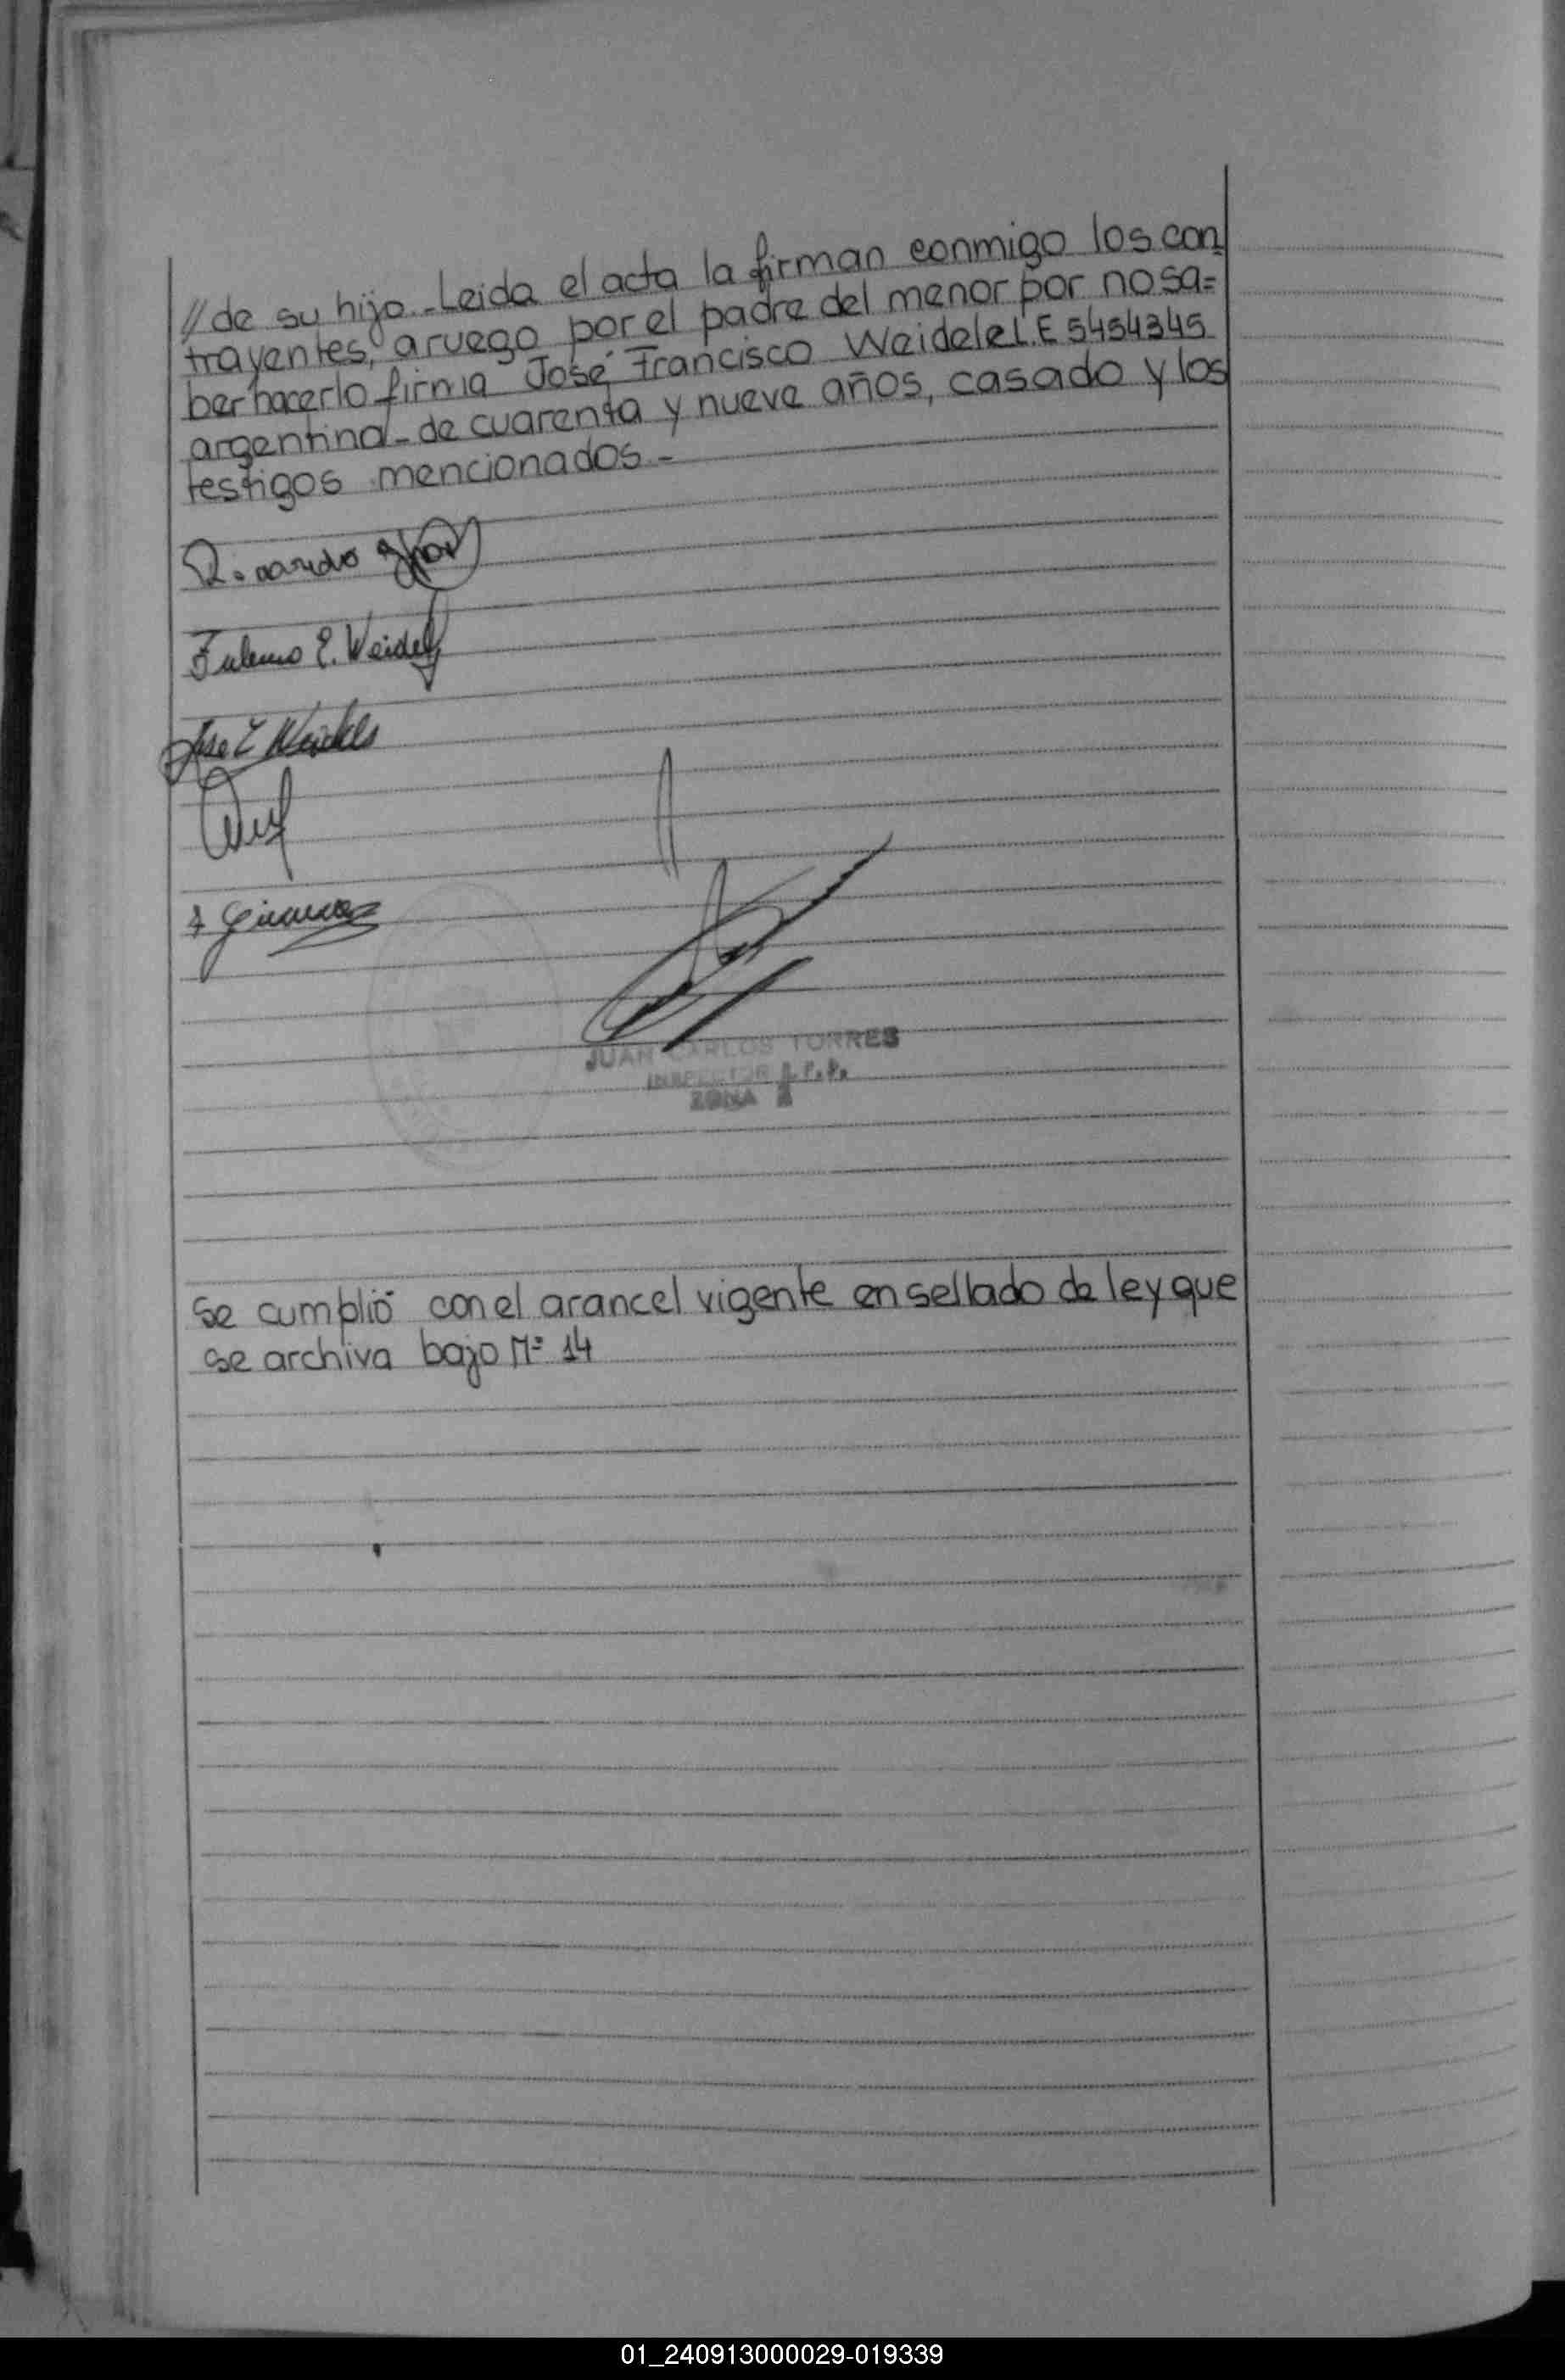 // de su hijo.- Leida el acta la firman conmigo los con-
trayentes, a ruego por el padre del menor por no sa=
ber hacerlo firma José Francisco Weidele L.E 5454345
argentino - de cuarenta y nueve años, casado y los
testigos mencionados.-
E. Weidel
Jose Weidel
JUAN CARLOS TORRES
INSPECTOR
ZONA
Se cumplió con el arancel vigente en sellado de ley que
se archiva bajo Nº 14
01_240913000029-019339